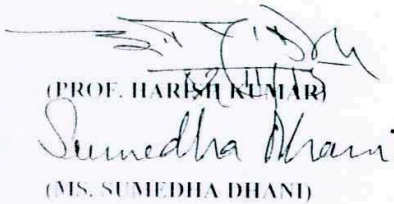 (PROF. HARISH KUMAR)
Sumedha Dhani
(MS. SUMEDHA DHANI)